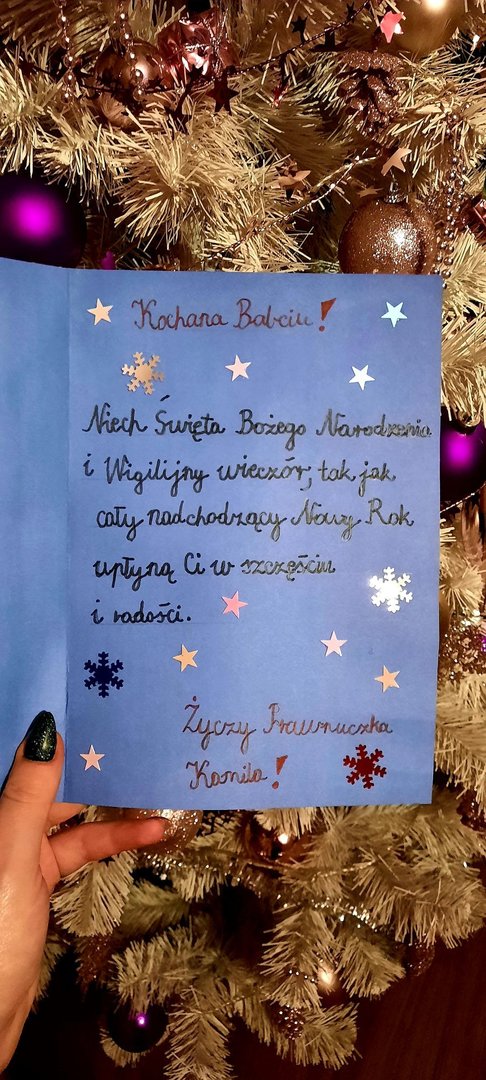 Kochana Babciu!
Niech Święta Bożego Narodzenia
i Wigilijny wieczór, tak jak
cały nadchodzący Nowy Rok
upłyną Ci w szczęściu
i radości.
Życzy Prawnuczka
Kamila!